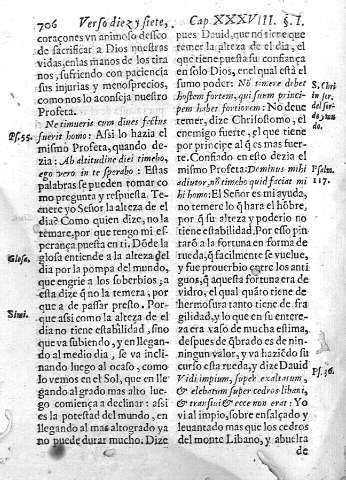 706 Verso diez y siete, Cap XXXVIII. §. I.
coraçones vn animoso deseo
de sacrificar a Dios nuestras
vidas, en las manos de los tira
nos, sufriendo con paciencia
sus injurias y menosprecios,
como nos lo aconseja nuestro
Profeta.
Ne timueris cum diues factus
Ps. 55.
fuerit homo: Assi lo hazia el
mismo Profeta, quando de-
zia: Ab altitudine diei timebo,
ego vero in te sperabo: Estas
palabras se pueden tomar co
mo pregunta y respuesta. Te-
nere yo Señor la alteza de el
dia? Como quien dize, no la
temare, por que tengo mi es-
perança puesta en ti. Dõde la
Glosa.
glosa entiende a la alteza del
dia por la pompa del mundo,
que engrie a los soberbios; a
esta dize q̃ no la temera, por
que a de passar presto. Por-
Simi.
que assi como la alteza de el
dia no tiene estabilidad, sino
que va subiendo, y en llegan-
do al medio dia, se va incli-
nando luego al ocaso, como
lo vemos en el Sol, que en lle
gando al grado mas alto lue-
go comiença a declinar: assi
es la potestad del mundo, en
llegando al mas alto grado ya
no puede durar mucho. Dize
pues Dauid, que no tiene que
temer la alteza de el dia, el
que tiene puesta su confiança
en solo Dios, en el qual está el
sumo poder: Nõ timere debet
hostem fortem, qui sum princi-
pem habet fortiorem: No deue
S. Chri
in ser.
temer, dize Chrisostomo, el
enemigo fuerte, el que tiene
por principe al q̃ es mas fuer-
te. Confiado en esto dezia el
mismo Profeta: Dominus mihi
Psalm.
adiutor, nõ timebo quid faciat mi
117.
hi homo: El Señor es mi ayuda,
no temere lo q̃ hara el hõbre,
por q̃ su alteza y poderio no
tiene estabilidad. Por esso pin
tarõ a la fortuna en forma de
rueda, q̃ facilmente se vuelue,
y fue prouerbio entre los anti
guos, q̃ aquesta fortuna era de
vidro, el qual quãto tiene de
hermosura tanto tiene de fra
gilidad, y lo que en su ente-
reza era vaso de mucha estima,
despues de q̃brado es de nin-
ningun valor, y va haziẽdo su
curso esta rueda, y dize Dauid
Vidi impium, super exaltatum,
Ps. 36.
& eleuatum super cedros libani,
& transiui & ecce non erat: Yo
vi al impio, sobre ensalçado y
leuantado mas que los cedros
del monte Libano, y a buelta
de